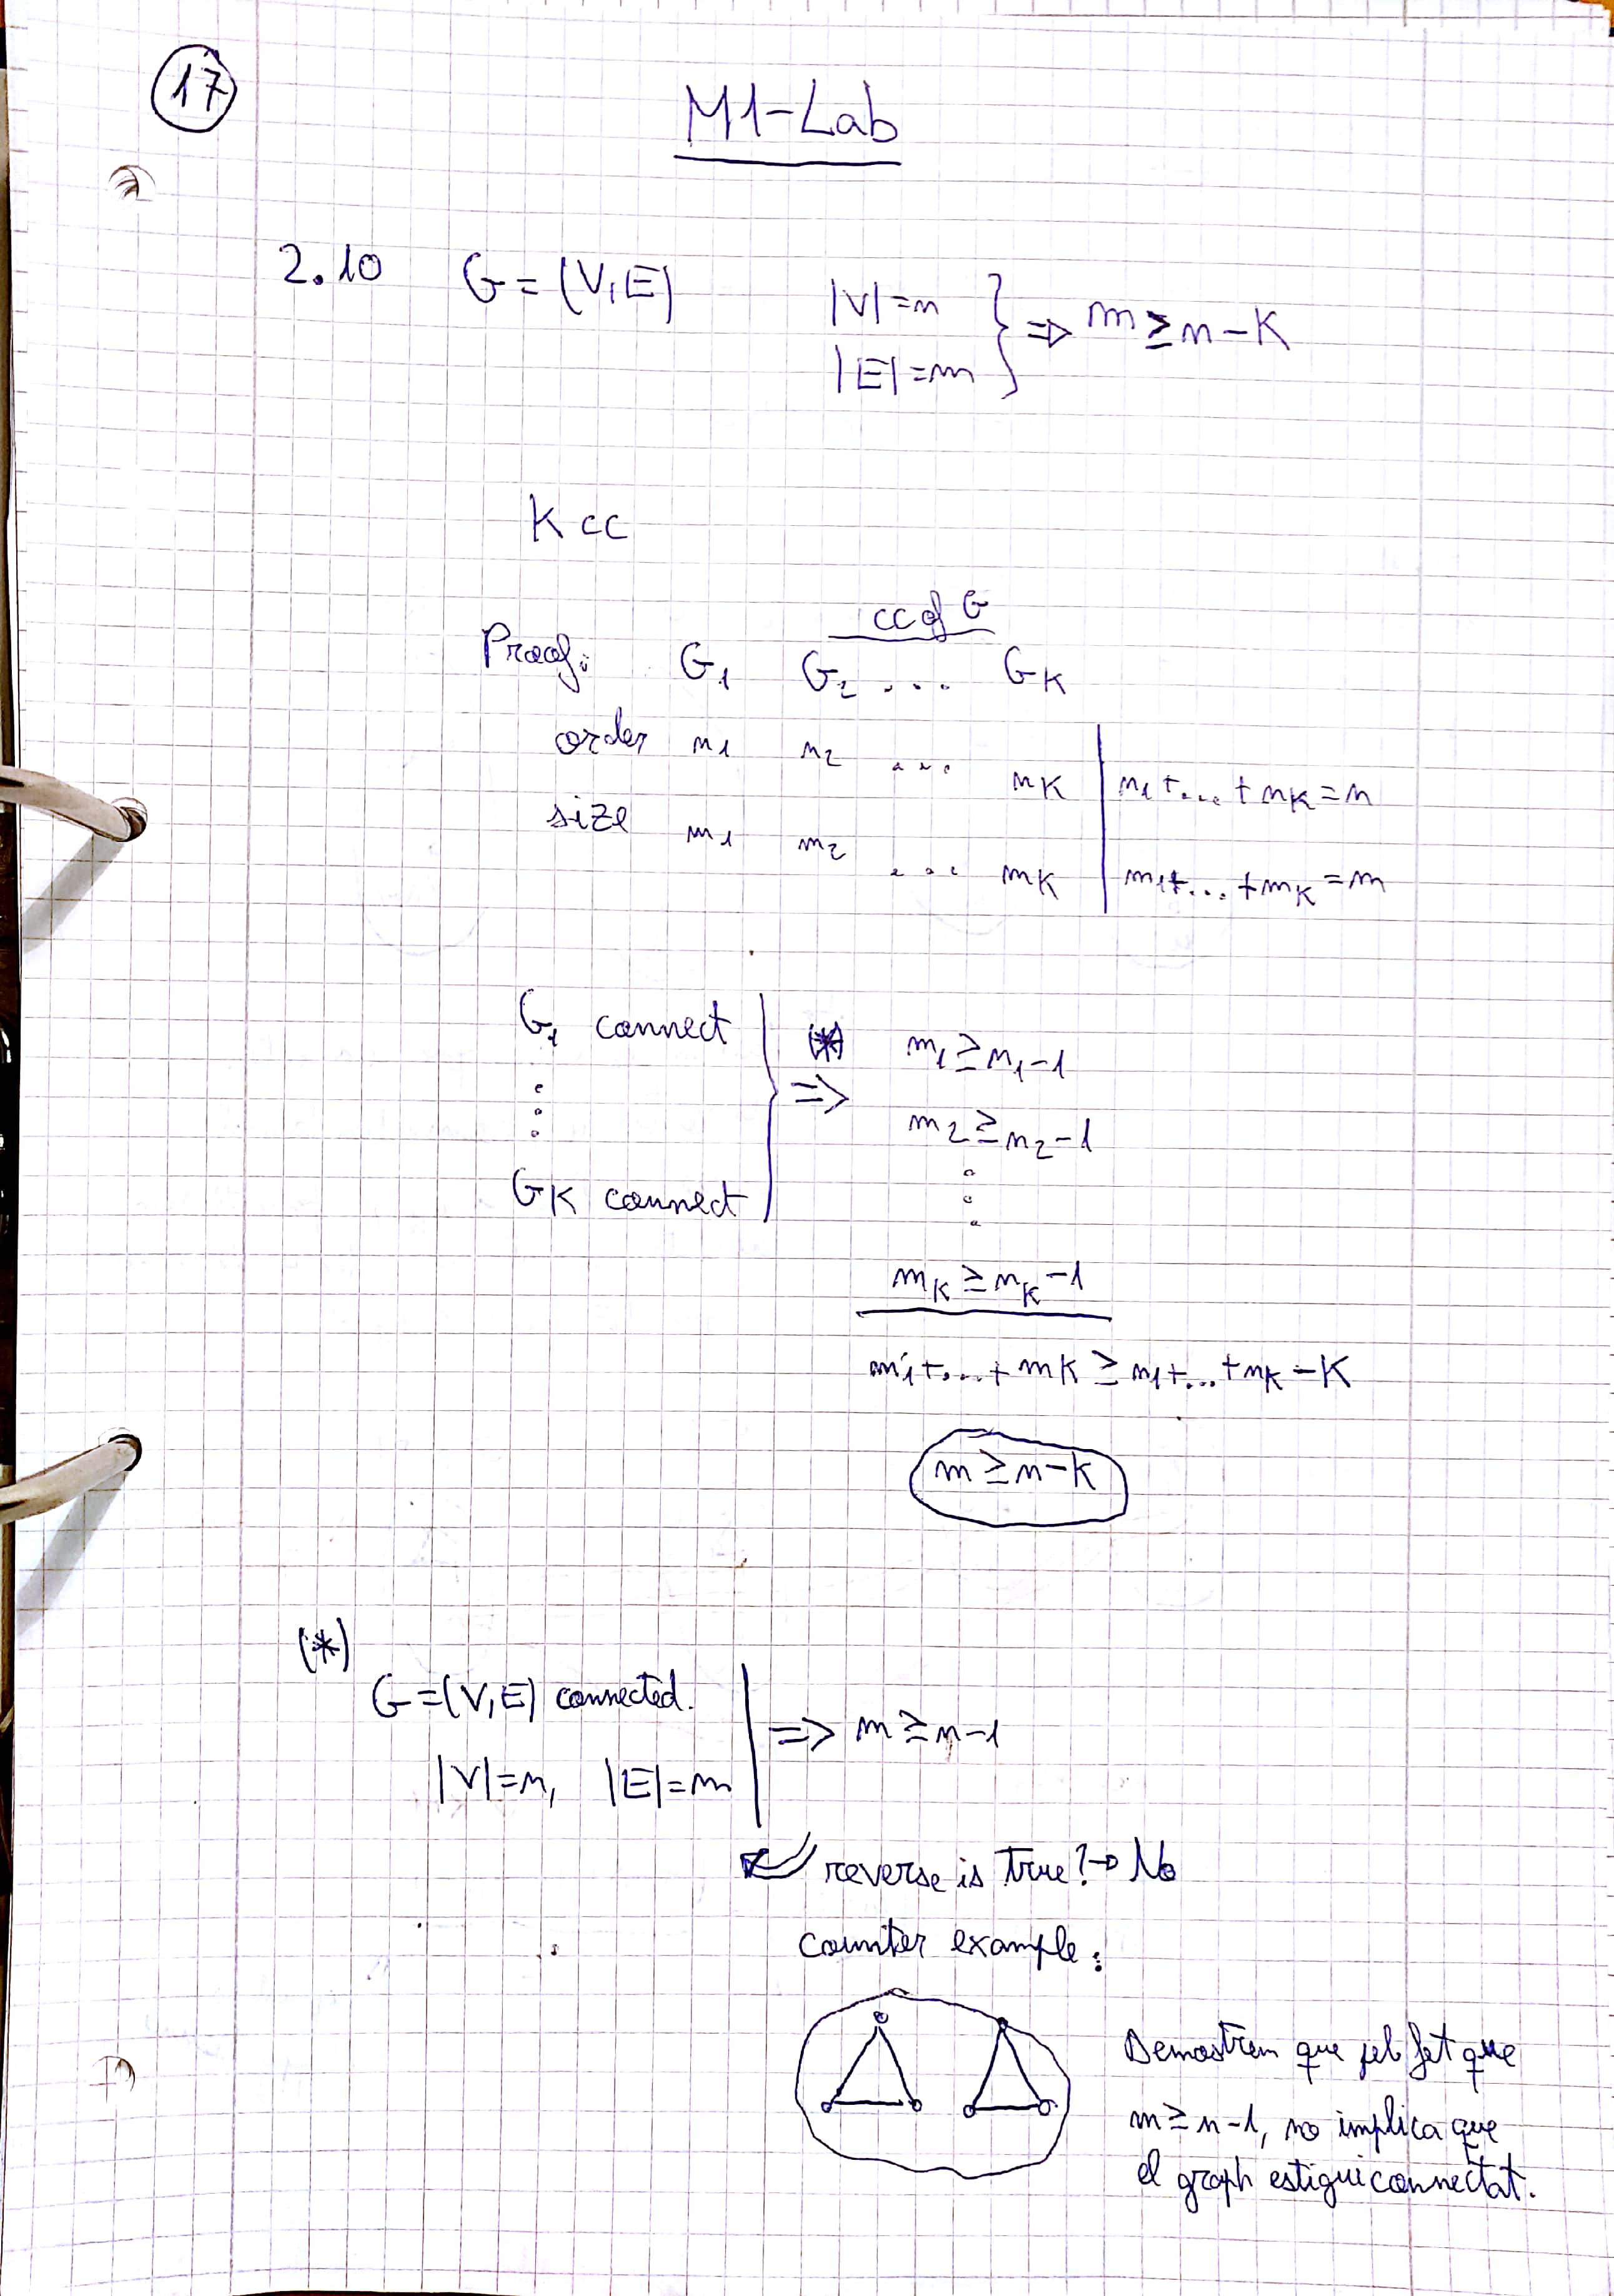 17
M1-Lab
2.10 G = (V,E) |V|=n
|E|=m } => m ≥ n-K
K cc
cc of G
Proof: G1 G2 ... GK
order n1 n2 ... nK | n1+...+nK=n
size m1 m2 ... mK | m1+...+mK=m
G1 connect (*) m1 ≥ n1-1
=>
m2 ≥ n2-1
GK connect
mK ≥ nK-1
m1+...+mK ≥ n1+...+nK-K
m ≥ n-k
(*)
G=(V,E) connected.
=> m ≥ n-1
|V|=n, |E|=m
reverse is true? → No
counter example:
Demostrem que pel fet que
m ≥ n-1, no implica que
el graph estigui connectat.